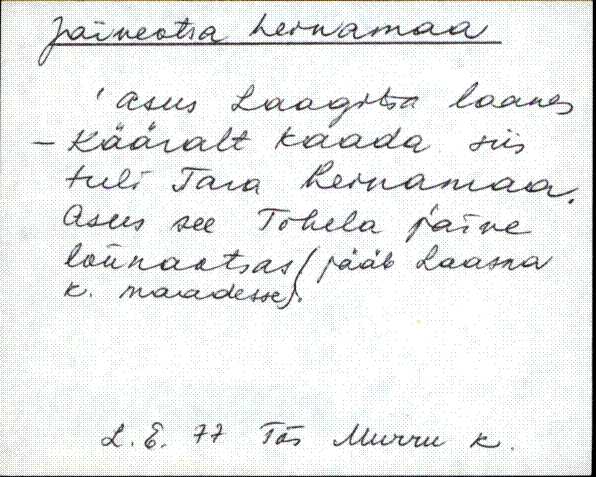 Järveotsa heinamaa
Asus Laagitsa laanes
- Kääralt kaada siis
tuli Tara heinamaa.
Asus see Tõhela järve
lõunaotsas (jääb Laasma
k. maadesse).
L. E. 77 Tõs Murru k.